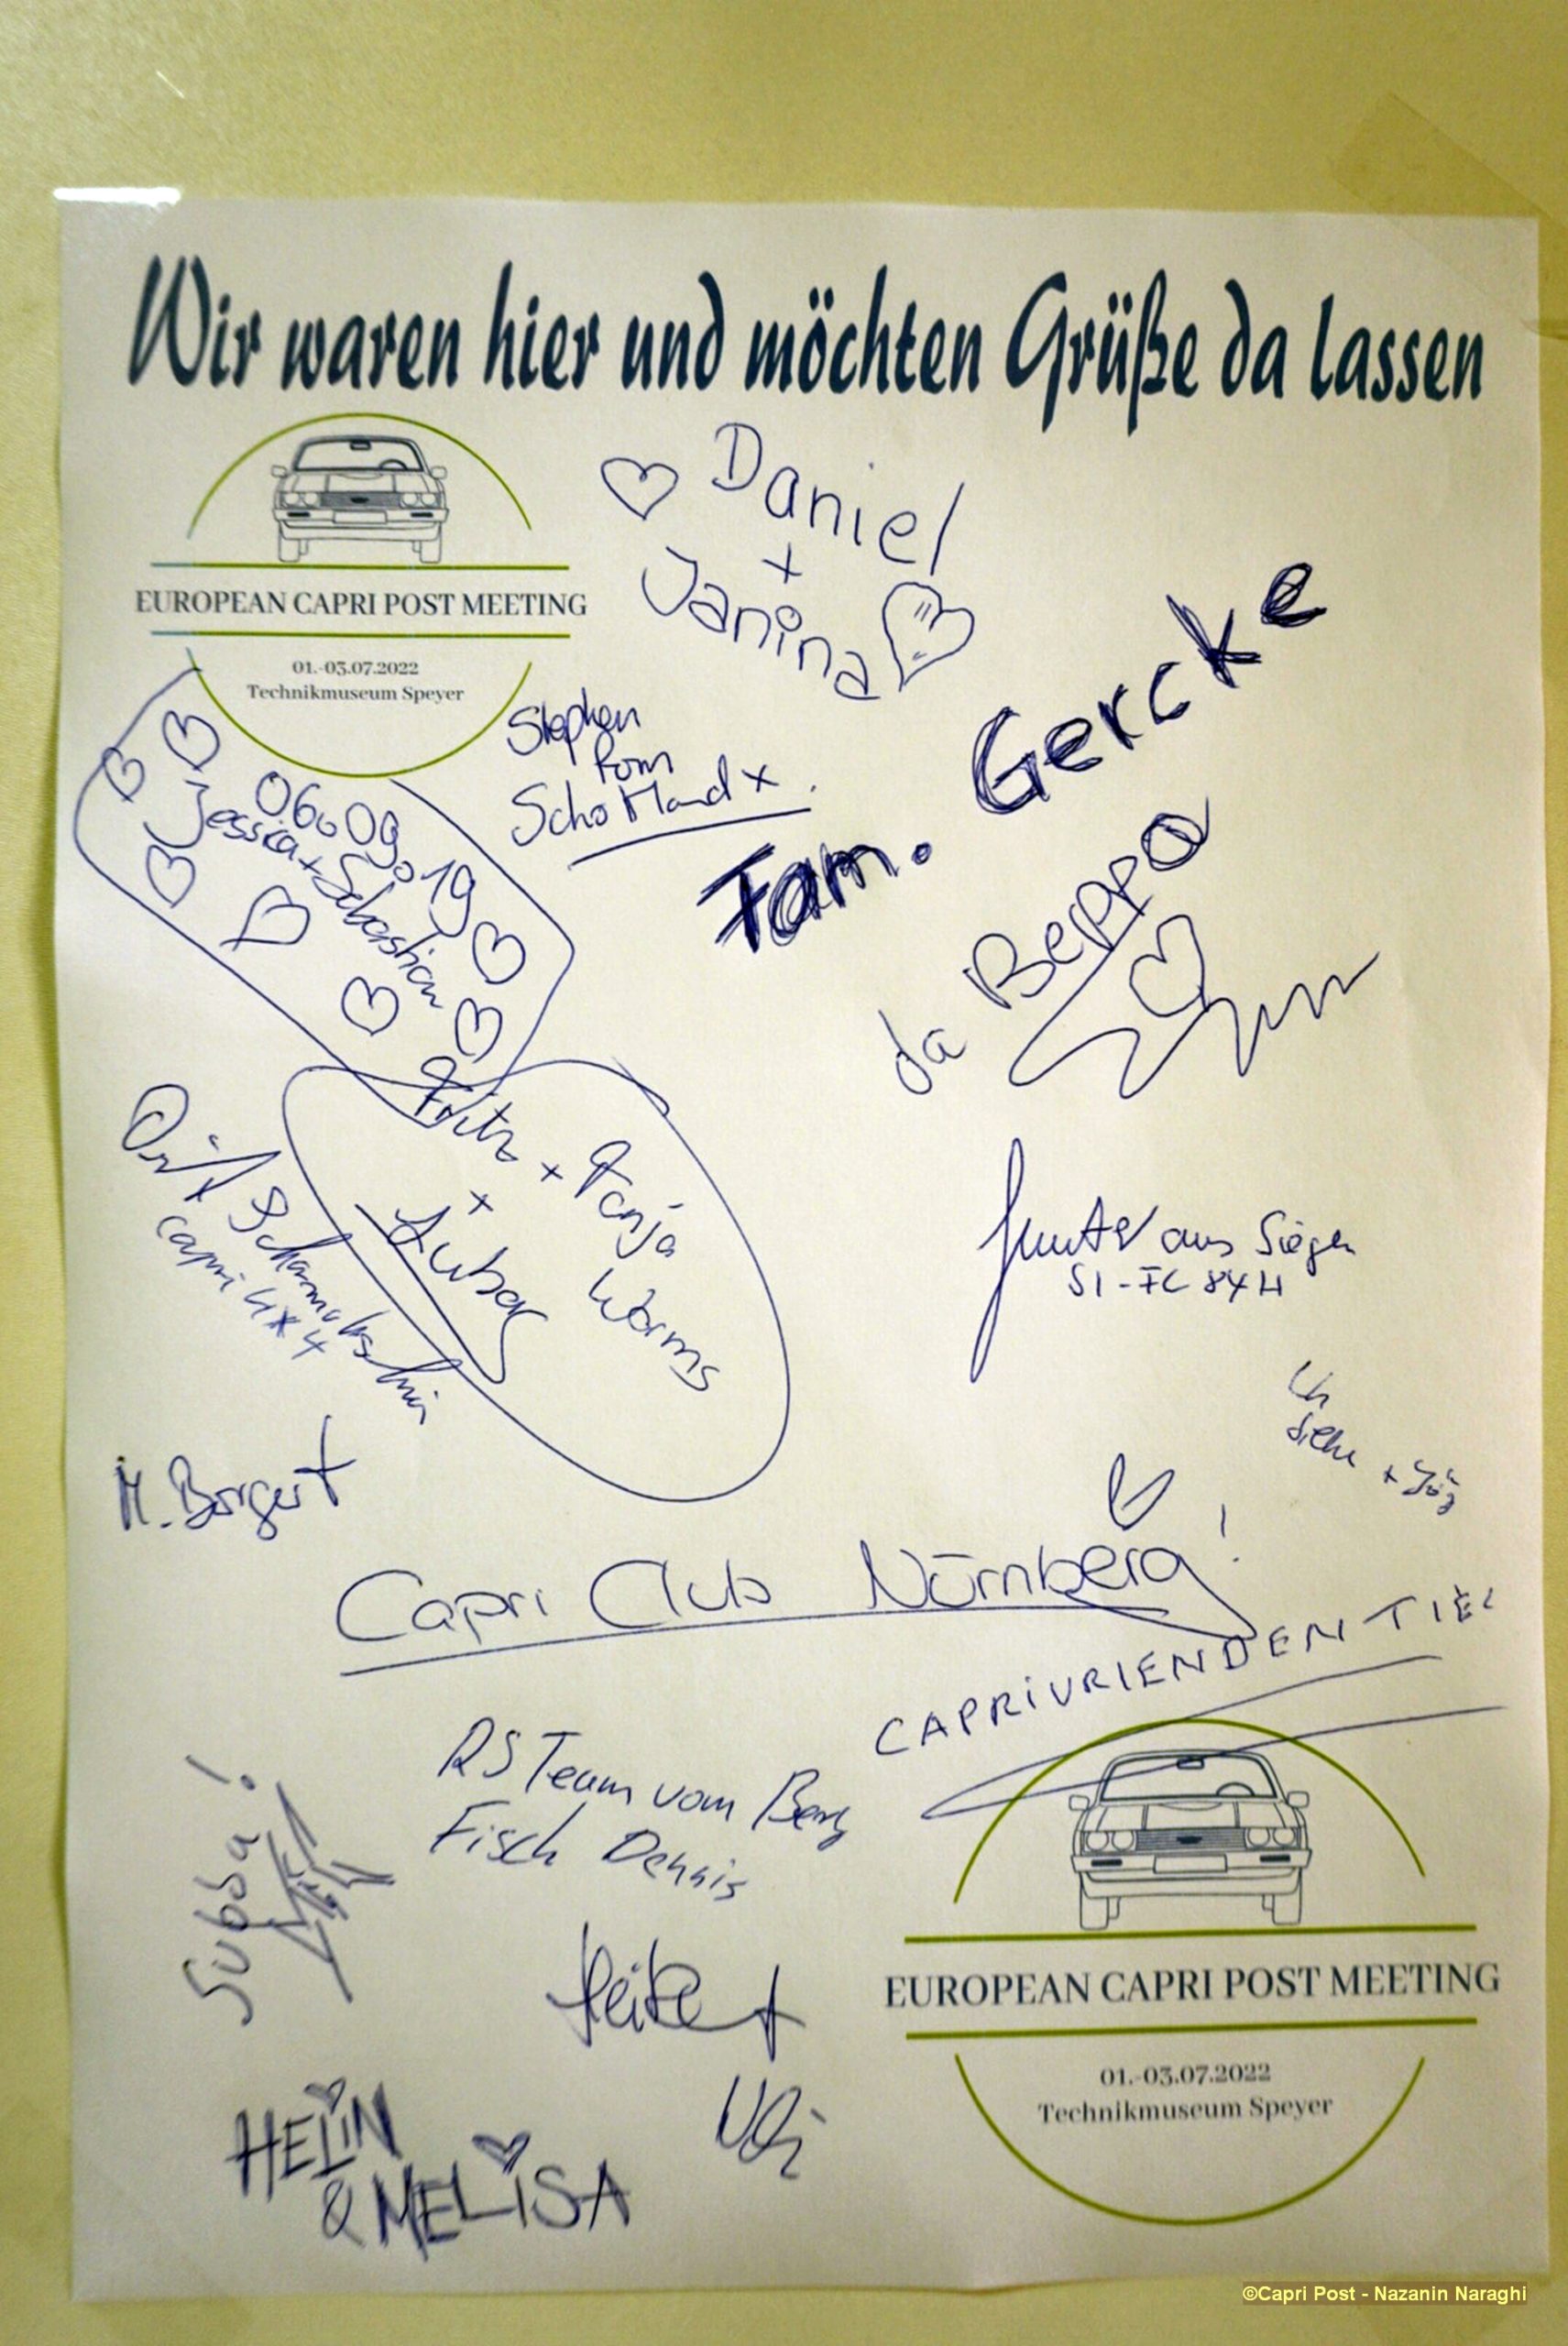 Wir waren hier und möchten Grüße da lassen
EUROPEAN CAPRI POST MEETING
01.-03.07.2022
Technikmuseum Speyer
Daniel
+
Janina
Fam. Gercke
Stephen
from
Schottland x
06.09.19
Jessica + Sebastian
da Beppo
Fritz + Tanja
+
Worms
capri 4x4
aus Siegen
SI-FC 84H
M. Borgert
Capri Club Nürnberg!
CAPRIVRIENDEN TIEL
RS Team vom Berg
Fisch Dennis
Subba!
Heike
Uli
HELiN
& MELiSA
EUROPEAN CAPRI POST MEETING
01.-03.07.2022
Technikmuseum Speyer
©Capri Post - Nazanin Naraghi